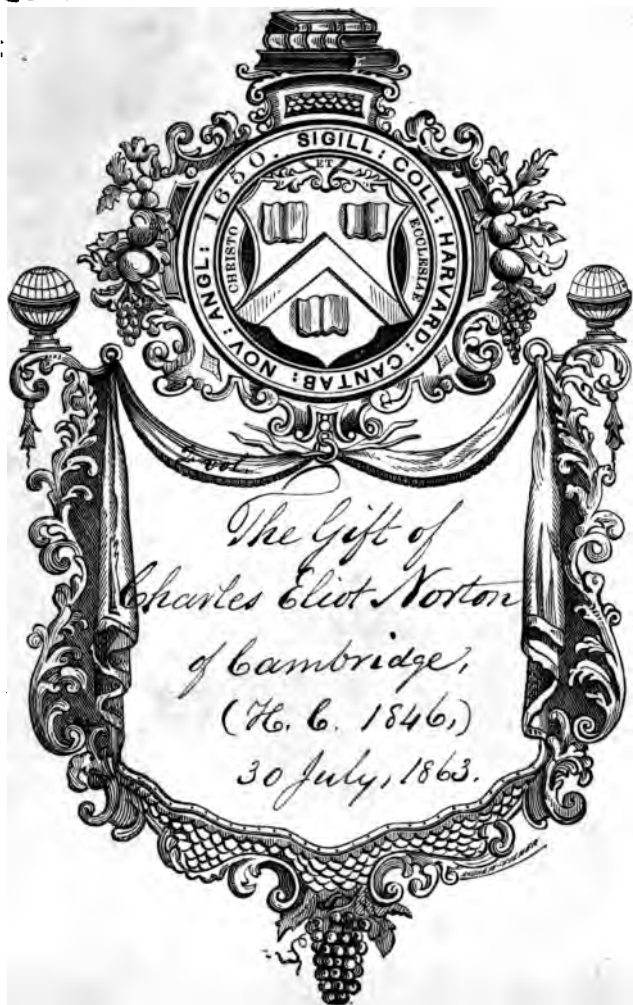 SIGILL: COLL: HARVARD: CANTAB: NOV: ANGL: 1650.
ET
CHRISTO
ECCLESIAE
2 vol.
The Gift of
Charles Eliot Norton
of Cambridge,
(H. C. 1846,)
30 July, 1863.